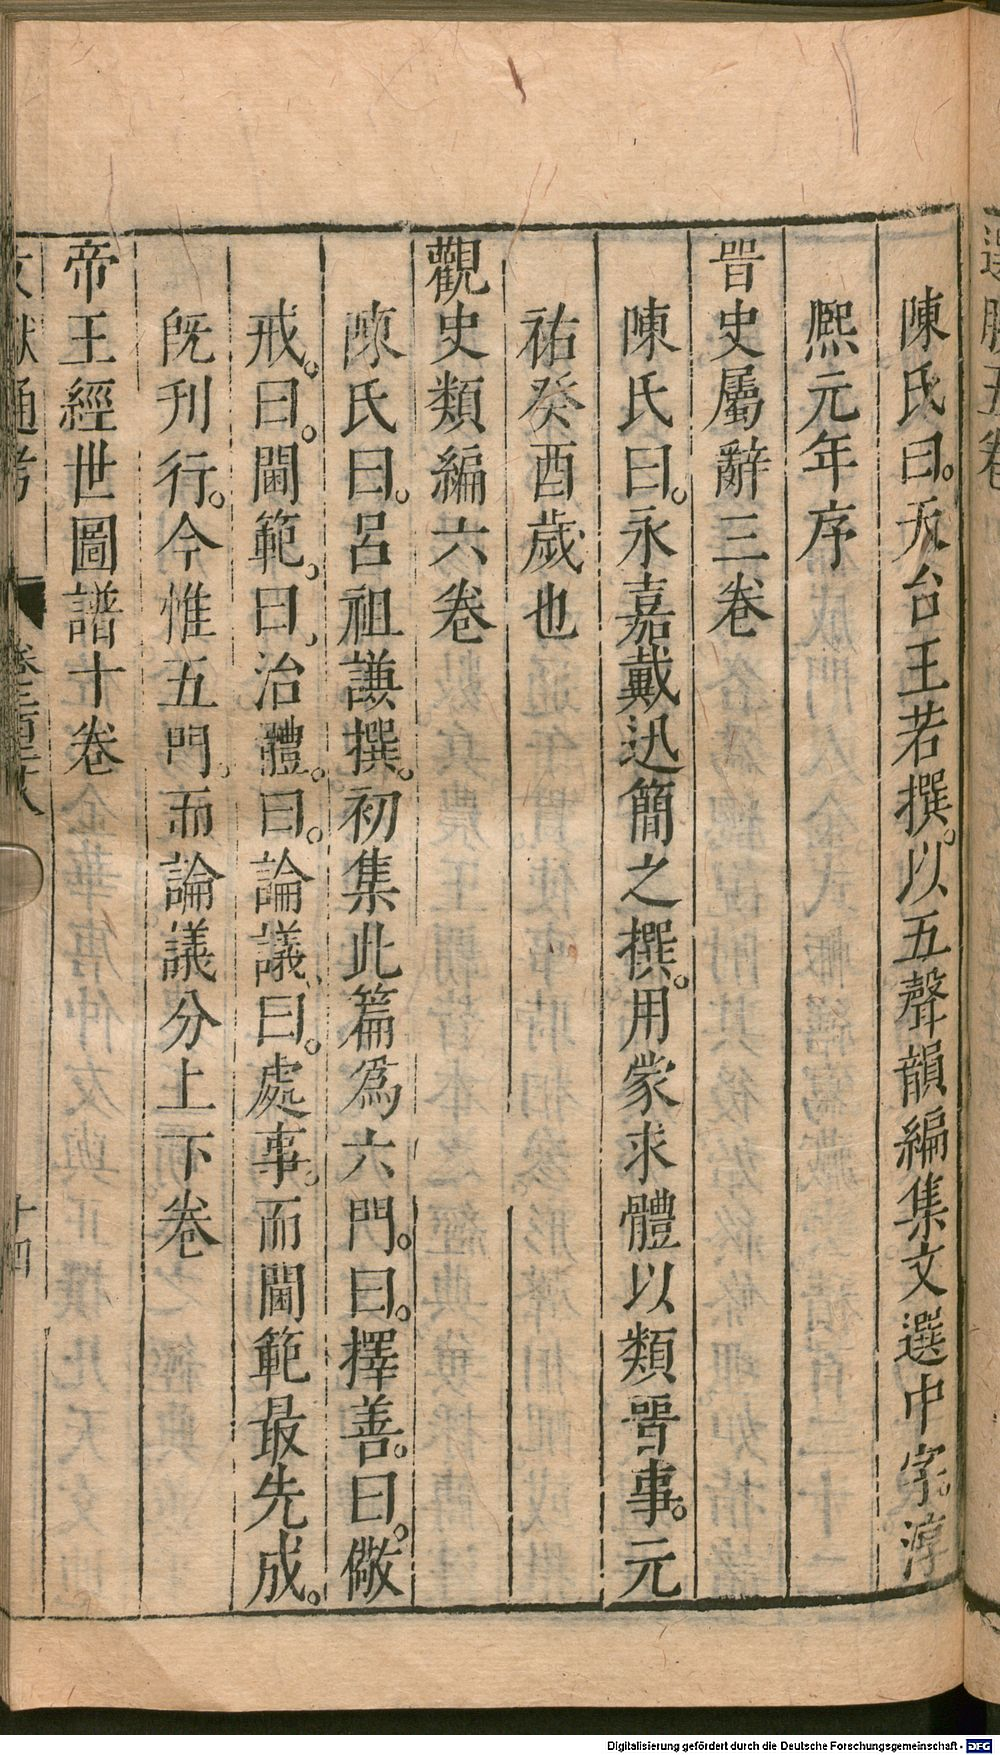 選腴五卷
陳氏曰。天台王若撰。以五聲韻編集文選中字。淳
熈元年序
晋史屬辭三卷
陳氏曰。永嘉戴迅簡之撰。用蒙求體以類晋事。元
祐癸酉歲也
觀史類編六卷
陳氏曰。呂祖謙撰。初集此篇爲六門。曰。擇善。曰。儆
戒。曰。閫範。曰、治體。曰。論議、曰。處事。而閫範最先成。
旣刊行。今惟五門。而論議分上下卷
帝王經世圖譜十卷
文獻通考
十四
Digitalisierung gefördert durch die Deutsche Forschungsgemeinschaft - DFG